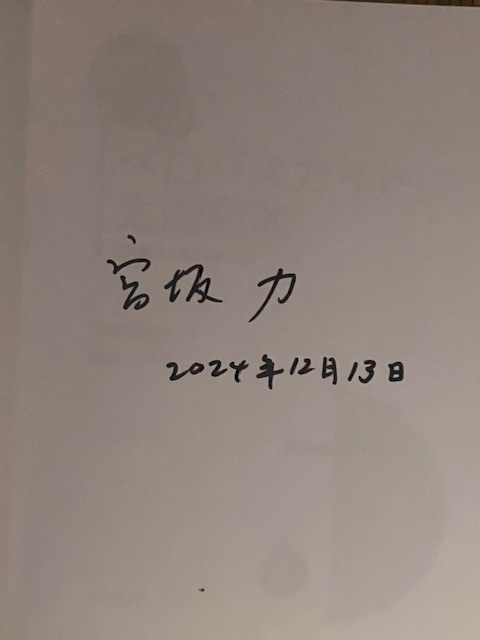 宮坂 力
2024年12月13日